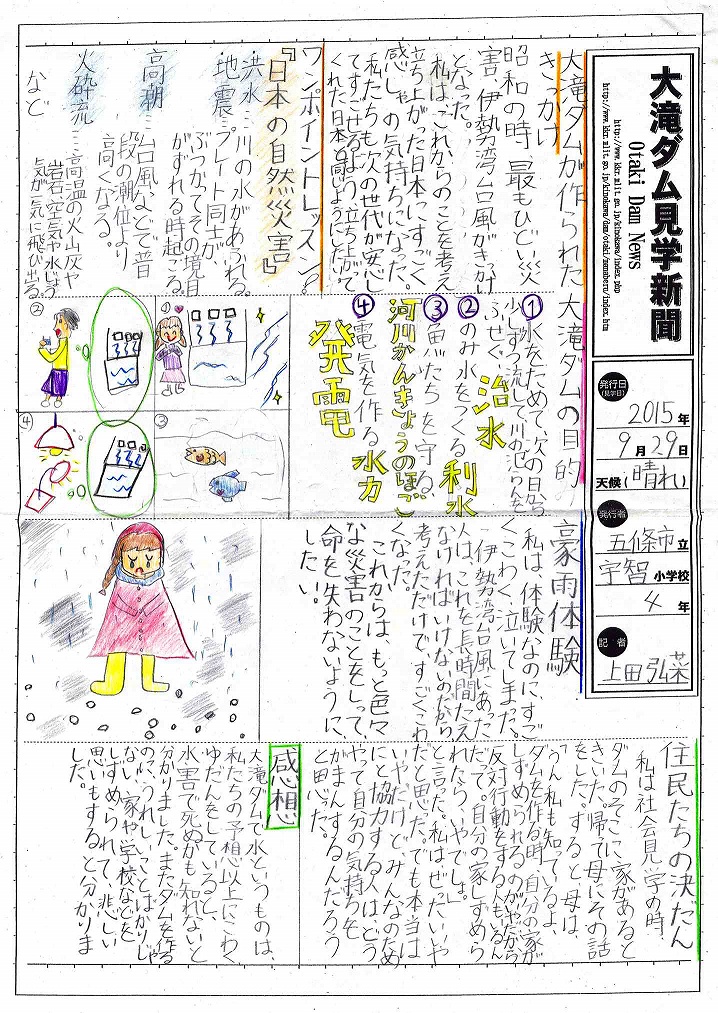 大滝ダム見学新聞
Otaki Dam News
http://www.kkr.mlit.go.jp/kinokawa/index.php
http://www.kkr.mlit.go.jp/kinokawa/dam/otaki/manaberu/index.htm
発行日
(見学日)
2015年
9月29日
天候(晴れ)
発行者
五條市立
宇智小学校
4年
記者
上田弘菜
大滝ダムが作られた
きっかけ
昭和の時、最もひどい災
害、伊勢湾台風がきっかけ
となった。
私は、これからのことを考え
立ち上がった日本にすごく
感しゃの気持ちになった。
私たちも次の世代が安心し
てすごせるよう、立ち上がって
くれた日本と同じようにしたい。
ワンポイントレッスン?
『日本の自然災害』
洪水…川の水があふれる。
地震…プレート同士が、
ぶつかってその境目
がずれる時起こる。
高潮…台風などで普
段の潮位より
高くなる。
火砕流…高温の火山灰や
岩石、空気や水じょう
気が一気に飛び出る
など
大滝ダムの目的
①水をためて、次の日から
少しずつ流して川のはんらんを
ふせぐ。治水
②のみ水をつくる 利水
③魚たちを守る。
河川かんきょうのほご
④電気を作る 水力
発電
①
②
③
④
豪雨体験
私は、体験なのに、すご
くこわく、泣いてしまった。
伊勢湾台風にあった
人は、これを長時間たえ
なければいけないのだから
考えただけで、すごくこわ
くなった。
これからは、もっと色々
な災害のことをしって、
命を失わないように、
したい。
住民たちの決だん
私は社会見学の時
ダムのそこに、家があると
きいた。帰って母にその話
をした。すると、母は、
「うん、私も知っているよ。
ダムを作る時、自分の家が
しずめられるのがいやだから
反対行動をする人もいるん
だって。自分の家しずめら
れたら、いやでしょ。」
と言った。私はぜったいいや
だと思った。でも本当は
いやだけどみんなのため
にと協力する人は、どう
やって自分の気持ちを
がまんするんだろう
と思った。
感想
大滝ダムで水というものは、
私たちの予想以上にこわく、
ゆだんをしていると、
水害で死ぬかも知れないと
分かりました。またダムを作る
のに、うれしいことばかりじゃ
ない、家や学校などを
しずめられて、悲しい
思いもすると分かりま
した。